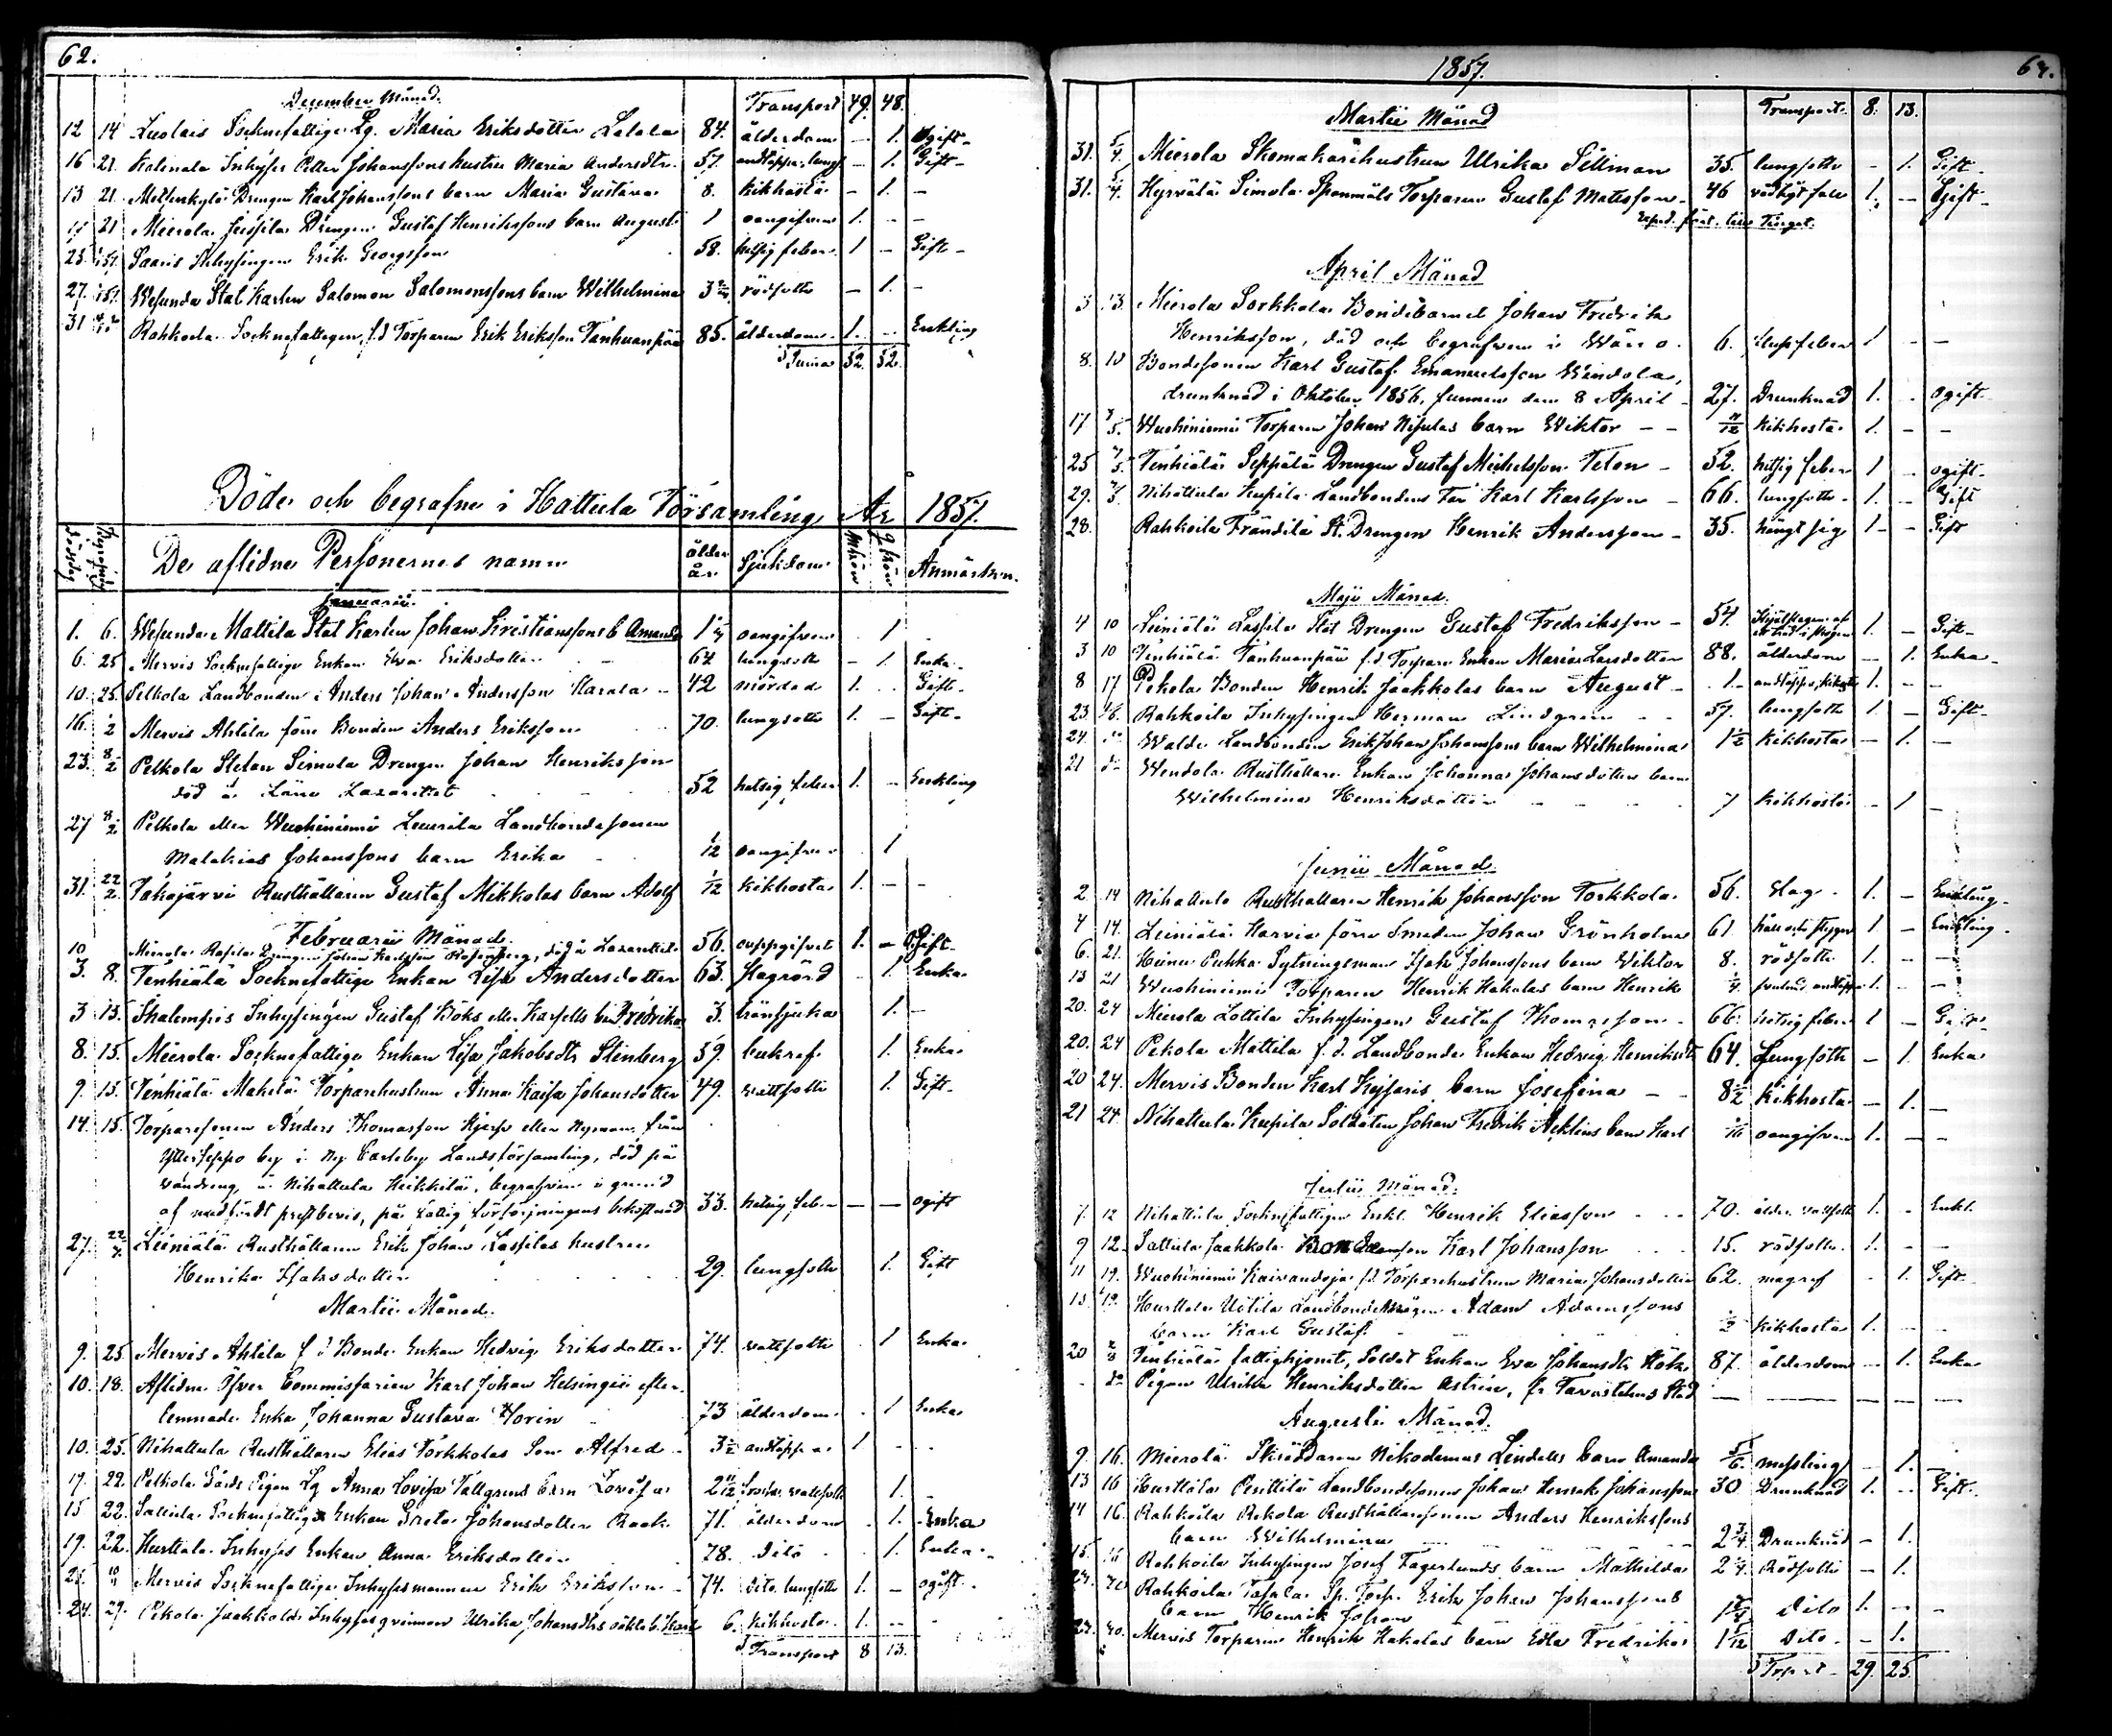 62.
December Månad.
Transport 49. 48.
12 14 Luolais Socknefattige Lg. Maria Eriksdotter Lalala 84. ålderdom — 1. Ogift -
16 21. Katinala Inhyses Petter Johanssons hustru Maria Andersdtr. 57. andtäppa, lungs — 1. Gift -
13 21. Metsenkylä Drengen Karl Johanssons barn Maria Gustava 8. Kikhosta — 1. —
21 Mierola Jussila Drengen Gustaf Henrikssons barn August 1 oangifven 1. — —
25. Saaris Inhysingen Erik Georgsson 58. hetsig feber 1 — Gift -
27. Wesunda Stat Karlen Salomon Salomonssons barn Wilhelmina 3 rödsotte — 1. —
31 Rahkoila Socknefattigen, f.d Torparen Erik Eriksson Tanhuanpää 85. ålderdom 1. — Enkling
Suma 52. 52.
Döde och begrafne i Hattula Församling År 1857.
Dödsdag Begrafningsdag De aflidne Personernes namn ålder år Sjukdom Mkön Qkön Anmärkn.
Januarii.
1. 6. Wesunda Mattila Stat Karlen Johan Kristianssons b Amanda 1 oangifven 1
6. 25 Mervis Socknefattige Enkan Eva Eriksdotter 64 lungsotte — 1. Enka
10. 25. Pelkola Landbonden Anders Johan Andersson Harala 42 mördad 1. Gift -
16. ½ Mervis Ahtila förre Bonden Anders Eriksson 70. lungsotte 1. — Gift -
23. 8/2 Pelkola Stefan Simola Drengen Johan Henriksson
död å Läne Lazarettet 52 hetsig feber 1. — Enkling
27 8/2 Pelkola eller Wuohiniemi Laurila Landbondesonen
Malakias Johanssons barn Erika ½ oangifven 1
31. 22/2 Pahojärvi Rusthållaren Gustaf Mikkolas barn Adolf 1/12 Kikhosta 1. — —
Februarii Månad.
10 Mierola Rasila Drengen Johan Karlsson Rosenberg, död å Lazarettet 56. ouppgifvet 1. — Gift.
3. 8. Tenhiälä Socknefattige Enkan Lisa Andersdotter 63. Slagrörd 1. Enka
3 15. Ihalempis Inhysingen Gustaf Böks eller Karsells b. Fredrika 3. bränsjuka 1. —
8. 15. Mierola Socknefattige Enkan Lisa Jakobsdtr Stenberg 59. bukref 1. Enka
9. 15. Tenhiälä Makelä Torparehustrun Anna Kaisa Johansdotter 49. vattsotte 1. Gift -
14. 15. Torparesonen Anders Thomasson Kjerf eller Nyman från
Ytterjeppo by i Ny Carleby Landsförsamling, död på
vandring, i Nihattula Heikkilä, begrafven i grund
af medfördt prestbevis, på Fattig försörjningens bekostnad 33. hetsig feber — — ogift
27. 22/4 Leiniälä Rusthållaren Erik Johan Lassilas hustru
Henrika Isaksdotter 29. lungsotte 1. Gift
Martii Månad.
9. 25 Mervis Ahtila f d Bonde Enkan Hedvig Eriksdotter 74. vattsotte 1 Enka
10. 18. Aflidne Öfver Commissarien Karl Johan Helsingii efter-
lemnade Enka Johanna Gustava Florin 73 ålderdom 1 Enka
10. 25. Nihattula Rusthållaren Elias Torkkolas Son Alfred 3½ andtäppa 1 —
19. 22. Pelkola Gårds Pigan Lg Anna Lovisa Tallgrens barn Lovisa 2 vattsotte 1. —
15 22. Sattula Socknefattige Enkan Greta Johansdotter Raak 71. ålderdom 1. Enka
19. 22. Hurttala Inhyses Enkan Anna Eriksdotter 78. Dito 1. Enka
Mervis Socknefattige Inhysesmannen Erik Eriksson 74. Dito lungsotte 1. — ogift
24. 29. Pekola Jaakkola Inhysesqvinnan Ulrika Johansdtrs oäkta b. Karl 6. Kikhosta 1. —
Transport 8 13.
1857. 64.
Martii Månad Transport. 8. 13.
31. 5/4 Mierola Skomakarehustrun Ulrika Sillman 35. lungsotte — 1. Gift -
31. 5/4 Hyrvälä Simola Spannmåls Torparen Gustaf Mattsson 46 1. — Gift -
April Månad
3 13. Mierola Sorkkola Bondebarnet Johan Fredrik
Henriksson, död och begrafven i Wånå. 6. 1 — —
8. 10 Bondesonen Karl Gustaf Emanuelsson Wendola,
drunknad i Oktober 1856, funnen den 8 April 27. Drunknad 1. ogift -
17 3/5. Wuohiniemi Torparen Johan Nisulas barn Wiktor — — Kikhosta 1. — —
25 3/5. Tenhiälä Seppälä Drengen Gustaf Michelsson Teton — 52. hetsig feber 1 — ogift -
29. 3/5. Nihattula Kupila Landbondens Far Karl Karlsson — 66. lungsotte 1. — Gift
28. Rahkoila Frändilä St. Drengen Henrik Andersson — 35. hängt sig 1 — Gift
Maji Månad.
4 10 Leiniälä Lassila Stat Drengen Gustaf Fredriksson — 54. ihjälslagen af ett träd i skogen 1. — Gift -
3 10 Tenhiälä Tanhuanpää f.d. Torpare Enkan Maria Larsdotter 88. ålderdom — 1. Enka
8 17 Pekola Bonden Henrik Jaakkolas barn August — 1. andtäppa, kikhosta 1. — —
23. Rahkoila Inhysingen Herman Lindgren 57. lungsotte 1. — Gift -
24. do Walde Landbonden Erik Johan Johanssons barn Wilhelmina 1½ Kikhosta — 1. —
21 do Wendola Rusthållare Enkan Johanna Johansdotters barn
Wilhelmina Henriksdotter 7 Kikhosta — 1 —
Junii Månad.
2. 14 Nihattula Rusthållaren Henrik Johansson Torkkola 56. Slag. 1. — Enkling.
4 14. Leiniälä Harvia förre Smeden Johan Grönholm 61. 1. — Enkling.
6. 21. Heinu Puhka Sytningsman Isak Johanssons barn Wiktor 8. rödsotte 1. — —
13 21 Wuohiniemi Torparen Henrik Hakalas barn Henrik 1. — —
20. 24 Mierola Lottila Inhysingen Gustaf Thomasson 66. hetsig feber 1 — Gift
20. 24 Pekola Mattila f. d. Landbonde Enkan Hedvig Henriksdtr 64. Lungsotte — 1. Enka
20 24. Mervis Bonden Karl Kejsaris barn Josefina — — 8½ Kikhosta — 1. —
21 24. Nihattula Kupila Soldaten Johan Fredrik Aeklins barn Karl oangifven 1. — —
Julii Månad.
7. 12 Nihattula Socknefattigen Enkl. Henrik Eliasson 70. ålder. vattsotte 1. Enkl.
9 12. Sattula Jaakkola Bondesonen Karl Johansson 15. rödsotte 1. — —
11 19. Wuohiniemi Kaivandoja f.d Torparehustrun Maria Johansdotter 62. magref 1. Gift -
15 19. Hurttala Uotila Landbonde Adam Adamssons
barn Karl Gustaf. Kikhosta 1. —
20 2/8 Tenhiälä fattighjonet, Soldat Enkan Eva Johansdtr Hök 87. ålderdom — 1. Enka
do Pigan Ulrika Henriksdotter Astrén, fr Tavastehus Stad — — — — —
Augusti Månad.
9. 16. Mierola Skräddaren Nikodemus Lindells barn Amanda messling — 1. —
13 16 Hurttala Penttilä Landbondesonen Johan Henrik Johansson 30. Drunknad 1. — Gift.
14 16. Rahkoila Rekola Rusthållaresonen Anders Henrikssons
barn Wilhelmina 2¾ Drunknad — 1.
15. 16 Rahkoila Inhysingen Josef Fagerlunds barn Mathilda 2¼ Rödsotte — 1.
Rahkoila Tasala Sp. Torp. Erik Johan Johanssons
barn Henrik Johan Dito 1. — —
Mervis Torparen Henrik Hakalas barn Edla Fredrika 1 Dito — 1.
Trpt 29. 25.